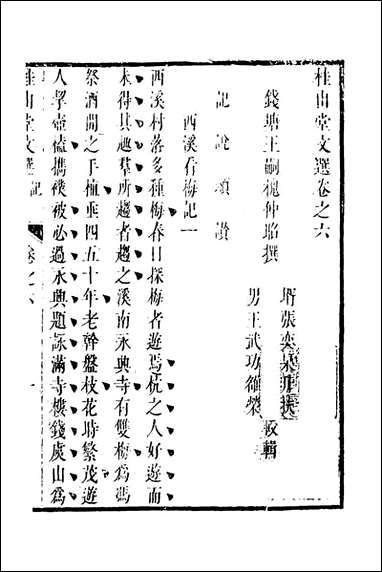 桂山堂文選卷之六
錢塘王嗣槐仲昭撰
壻張奕
男王武功
較輯
記說頌讚
西溪看梅記一
西溪村落多種梅春日探梅者遊焉杭之人好遊而
未得其趣羣所趨者趨之溪南永興寺有雙梅為馮
祭酒開之手植垂四五十年老幹盤枝花時繁茂遊
人挈壺榼攜襆被必過永興題詠滿寺樓錢虞山為
桂山堂文選
記
卷之六
一